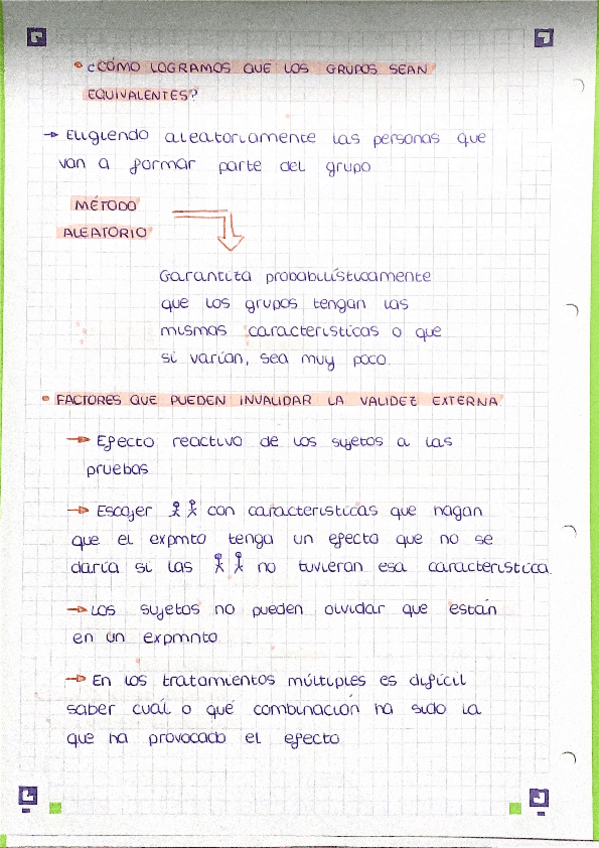 • ¿CÓMO LOGRAMOS QUE LOS GRUPOS SEAN
EQUIVALENTES?
→ Eligiendo aleatoriamente las personas que
van a formar parte del grupo
MÉTODO
ALEATORIO
Garantiza probabilísticamente
que los grupos tengan las
mismas características o que
si varían, sea muy poco.
• FACTORES QUE PUEDEN INVALIDAR LA VALIDEZ EXTERNA.
→ Efecto reactivo de los sujetos a las
pruebas
→ Escojer con características que hagan
que el expmto tenga un efecto que no se
daría si las no tuvieran esa característica.
→ Los sujetos no pueden olvidar que están
en un expmnto.
→ En los tratamientos múltiples es difícil
saber cuál o qué combinación ha sido la
que ha provocado el efecto